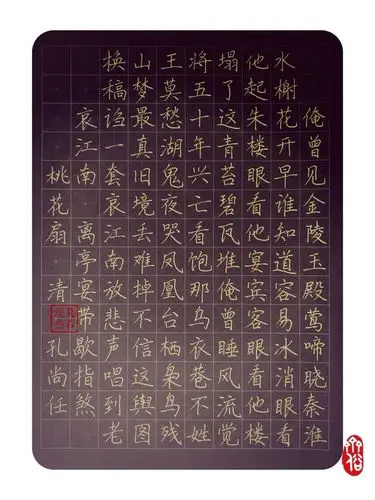 俺曾见金陵玉殿莺啼晓秦淮
水榭花开早谁知道容易冰消眼看
他起朱楼眼看他宴宾客眼看他楼
塌了这青苔碧瓦堆俺曾睡风流觉
将五十年兴亡看饱那乌衣巷不姓
王莫愁湖鬼夜哭凤凰台栖枭鸟残
山梦最真旧境丢难掉不信这舆图
换稿诌一套哀江南放悲声唱到老
哀江南·离亭宴带歇指煞
桃花扇·清 孔尚任